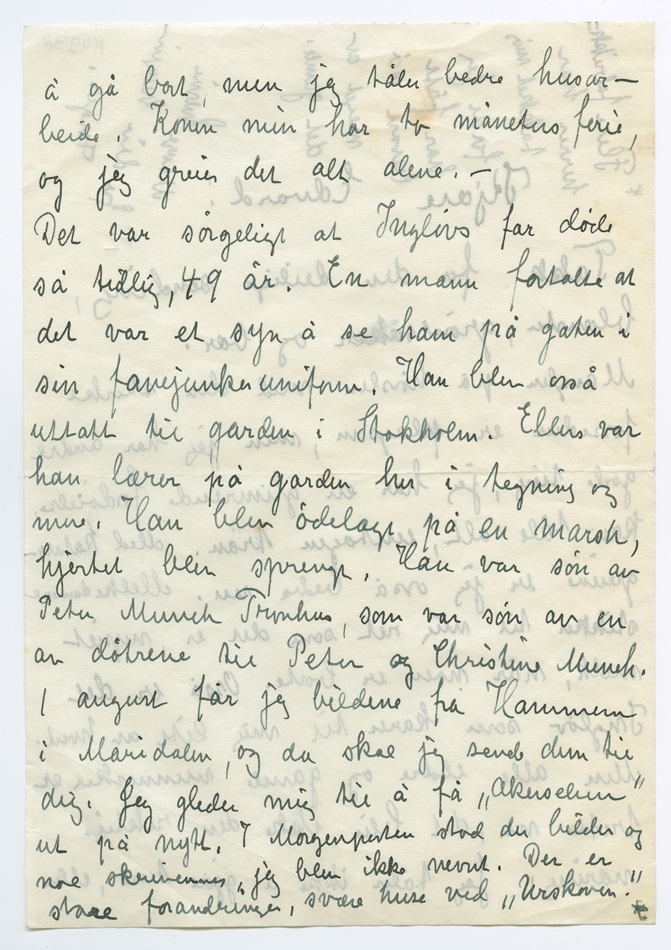 å gå bort, men jeg tåler bedre husar-
beide. Konen min har to måneters ferie,
og jeg greier det alt alene. —
Det var sørgeligt at Inglivs far døde
så tidlig, 49 år. En mann fortalte at
det var et syn å se ham på gaten i
sin fanejunkeruniform. Han blev også
uttatt til garden i Stokholm. Ellers var
han lærer på garden her i tegning og
mere. Han blev ødelagt på en marsh,
hjertet blev sprengt. Han var søn av
Peter Munch Tronhus, som var søn av en
av døtrene til Peter og Christine Munch.
I august får jeg bildene fra Hammeren
i Maridalen, og da skal jeg sende dem til
dig. Jeg gleder mig til å få „Akerselven"
ut på nytt. I Morgenposten stod der bilder og
noe skrivennes, jeg blev ikke nevnt. Der er
store forandringer, svære huse ved „Urskoven."